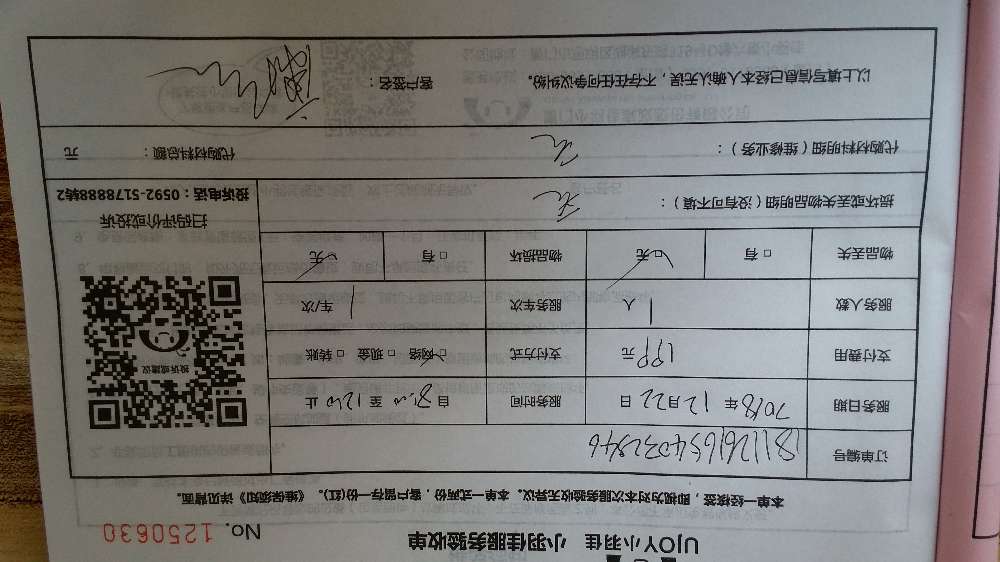 UJOY小羽佳 小羽佳服务验收单 No. 1250630
本单一经核签，即视为对本次服务验收无异议。本单一式两份，客户留存一份(红)。《维保须知》详见背面。
订单编号
服务日期 2018年12月22日 服务时间 自8:00至1200止
支付费用 199元 支付方式 网络 □现金 □转账
服务人数 1人 服务车次 1车/次
物品丢失 □有 □无 物品损坏 □有 □无
损坏或丢失物品明细（没有可不填）： 无
代购材料明细（维修业务）： 无 代购材料总额： 元
以上填写信息已经本人确认无误，不存在任何争议纠纷。 客户签名：
投诉或建议
扫码评价或投诉
投诉电话：0592-5178888转2